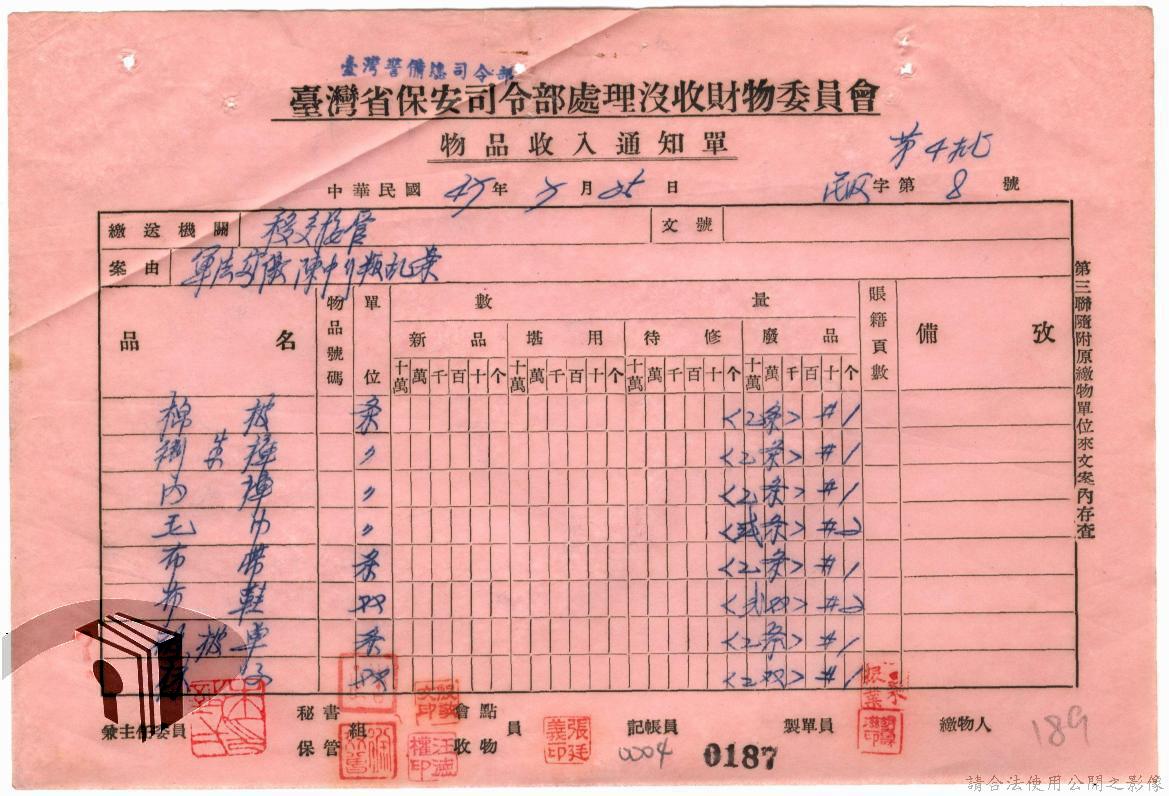 臺灣警備總司令部
臺灣省保安司令部處理沒收財物委員會
物品收入通知單
第4九七
中華民國 47 年 5 月 26 日 字第 8 號
繳送機關 移交接管 文號
案由 陳 叛亂案
品名 物品號碼 單位 數量 賬籍頁數 備攷
新品 堪用 待修 廢品
十萬 萬 千 百 十 个 十萬 萬 千 百 十 个 十萬 萬 千 百 十 个 十萬 萬 千 百 十 个
棉被 条 <2条> #1
褲 〃 <2条> #1
內褲 〃 <2条> #1
毛巾 〃 <貳条> #2
布帶 条 <2条> #1
布鞋 双 <弍双> #2
被單 条 <2条> #1
双 <2双> #1
第三聯隨附原繳物單位來文案內存查
兼主任委員 秘書 保管組 會點收物員 記帳員 製單員 繳物人
張廷義印
0004
0187
189
請合法使用公開之影像